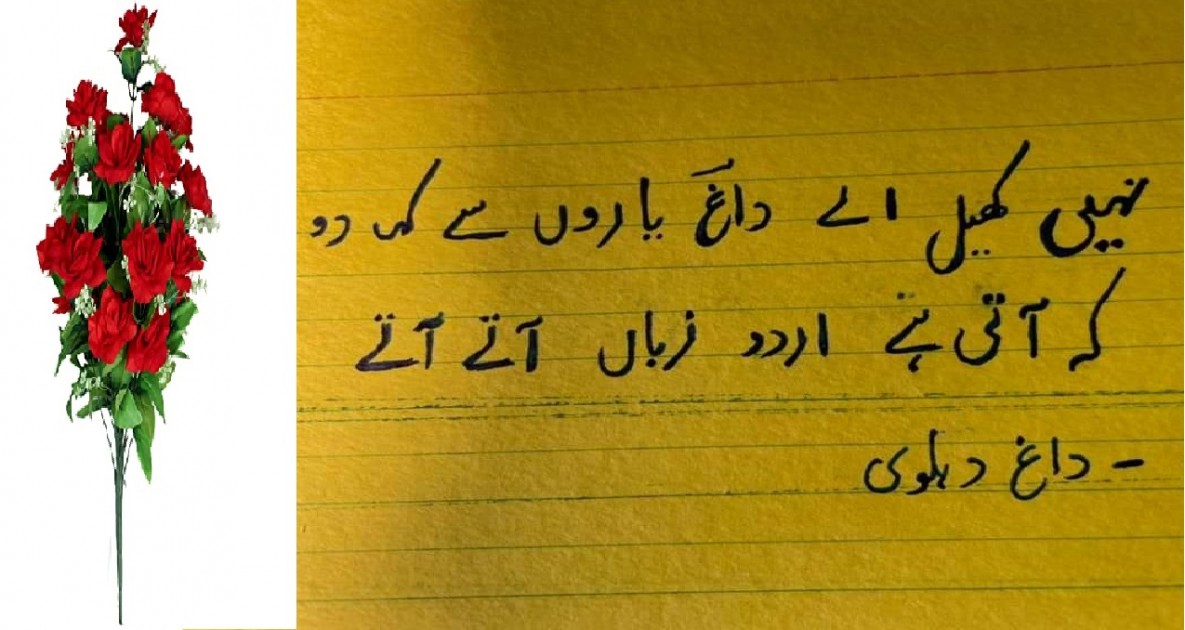 نہیں کھیل اے داغؔ یاروں سے کہہ دو
کہ آتی ہے اردو زباں آتے آتے
- داغ دہلوی